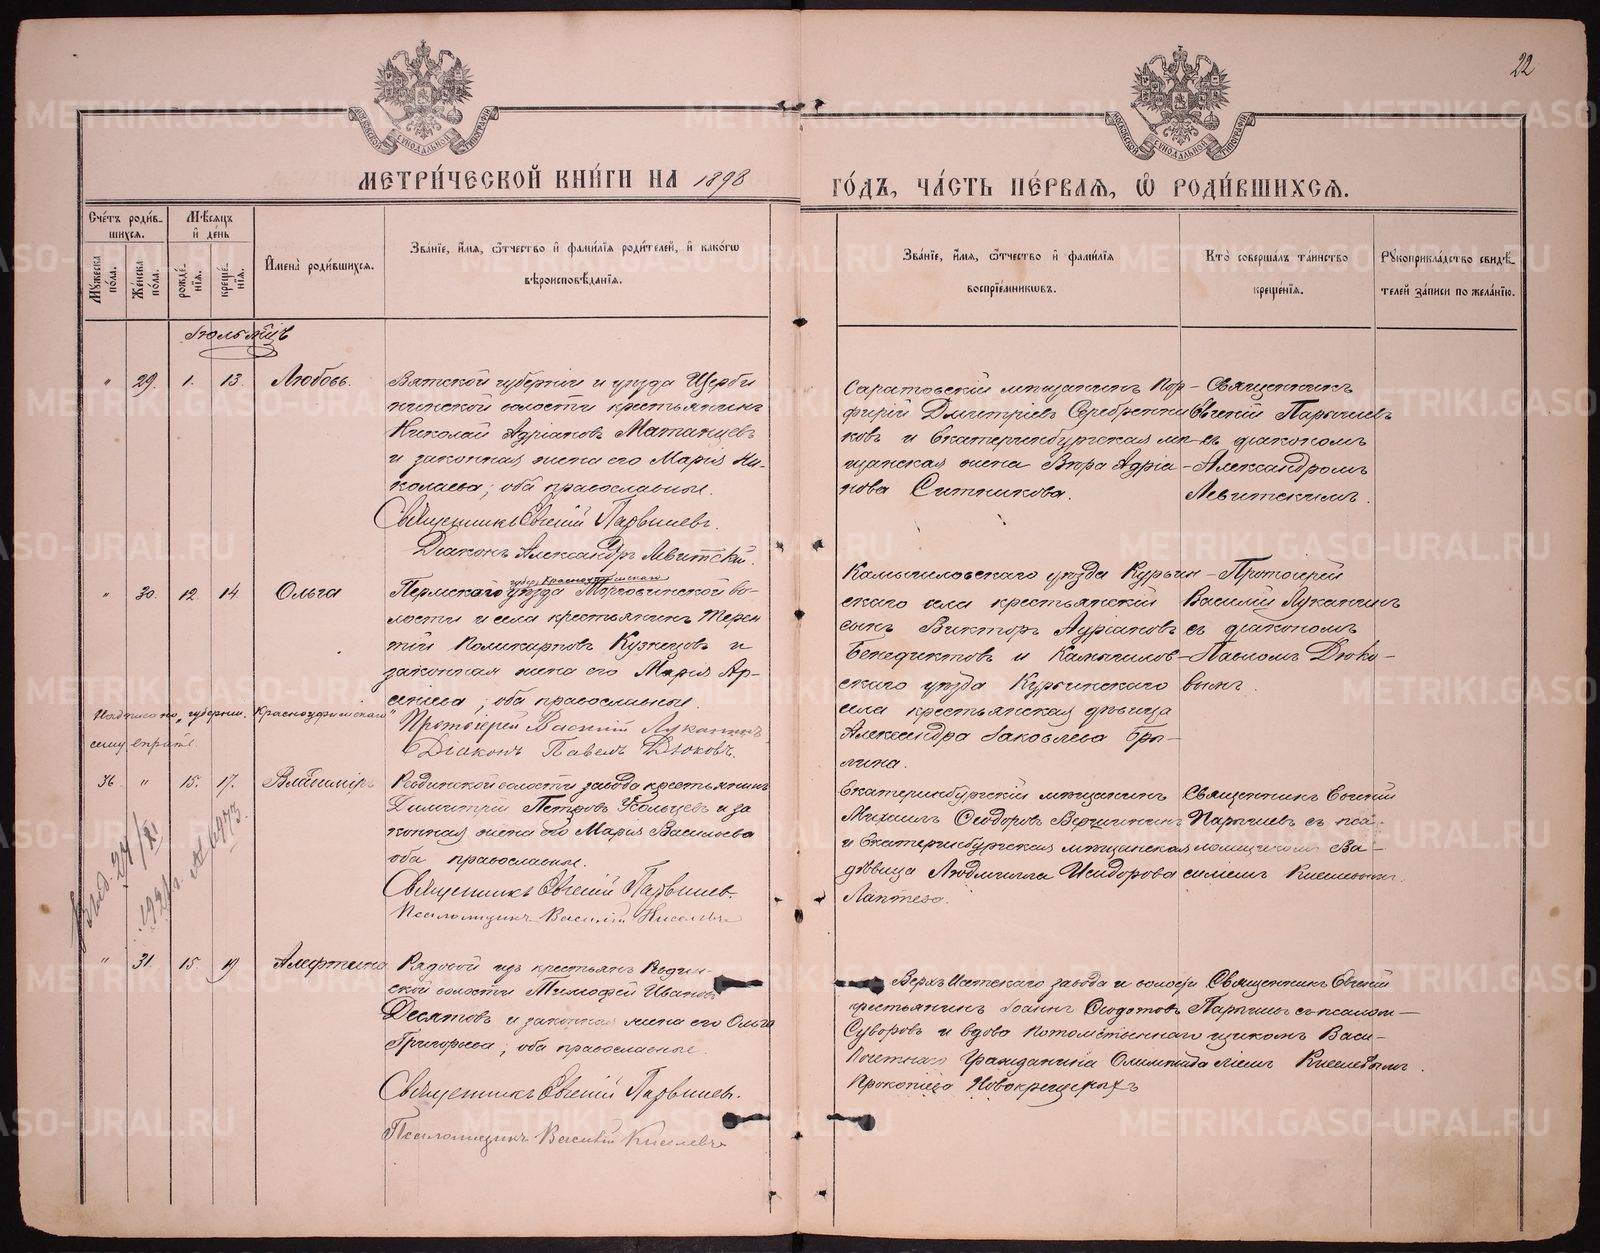 22
МЕТРИ́ЧЕСКОЙ КНИ́ГИ НА 1898
ГО́ДЪ, ЧА́СТЬ ПЕ́РВАѦ, Ѡ҆ РОДИ́ВШИХСѦ.
Сче́тъ роди́в-
шихсѧ.
Мѣ́сѧцъ
и҆ де́нь
Мꙋ́жеска
по́ла.
Же́нска
по́ла.
рожде́-
нїѧ.
креще́-
нїѧ.
И҆мена̀ роди́вшихсѧ.
Зва́нїе, и҆́мѧ, ѻ҆́тчество и҆ фами́лїѧ роди́телей, и҆ како́гѡ
вѣроисповѣ́данїѧ.
Зва́нїе, и҆́мѧ, ѻ҆́тчество и҆ фами́лїѧ
воспрїе́мникѡвъ.
Кто̀ соверша́лъ та́инство
креще́нїѧ.
Рꙋкоприкла́дство свидѣ́-
телей за́писи по жела́нїю.
Іюль мѣсяцъ
" 29. 1. 13. Любовь.
Вятской губерніи и уѣзда Щерби
нинской волости крестьянинъ
Николай Адріановъ Матанцевъ
и законная жена его Марія Ни-
колаева; оба православные.
Священникъ Евгеній Парышевъ.
Діаконъ Александръ Левитскій.
Саратовскій мѣщанинъ Пор-
фирій Дмитріевъ Серебренни
ковъ и Екатеринбургская мѣ-
щанская жена Вѣра Адріа-
нова Ситникова.
Священникъ
Евгеній Парышевъ
съ діакономъ
Александромъ
Левитскимъ.
" 30. 12. 14 Ольга
губер. Красноуфимскаго
Пермскаго уѣзда Морговинской во-
лости и села крестьянинъ Терен
тій Поликарповъ Кузнецовъ и
законная жена его Марія Ар-
сеніева; оба православные.
Протоіерей Василій Луканинъ
Діаконъ Павелъ Дюковъ.
Надписано, губерніи. Красноуфимскаго
сему вѣрить.
Камышловскаго уѣзда Курьин-
скаго села крестьянскій
сынъ Викторъ Адріановъ
Бенедиктовъ и Камышлов-
скаго уѣзда Курьинскаго
села крестьянская дѣвица
Александра Іаковлева Бры-
лина.
Протоіерей
Василій Луканинъ
съ діакономъ
Павломъ Дюко-
вымъ.
36 " 15. 17. Владиміръ
Ревдинской волости завода крестьянинъ
Димитрій Петровъ Усольцевъ и за
конная жена его Марія Васильева
оба православные.
Священникъ Евгеній Парышевъ.
Псаломщикъ Василій Киселевъ
Екатеринбургскій мѣщанинъ
Михаилъ Ѳеодоровъ Вершининъ
и Екатеринбургская мѣщанская
дѣвица Людмилла Исидорова
Лаптева.
Священникъ Евгеній
Парышевъ съ пса-
ломщикомъ Ва-
силіемъ Киселевымъ.
Выд. 24/XI
1921 г. № 6473.
" 31. 15. 19 Алефтина
Рядовой изъ крестьянъ Ревдин-
ской волости Тимофей Ивановъ
Десятовъ и законная жена его Ольга
Григорьева; оба православные.
Священникъ Евгеній Парышевъ.
Псаломщикъ Василій Киселевъ
Верхъ-Исетскаго завода и волости
крестьянинъ Іоаннъ Ѳеодотовъ
Суворовъ и вдова потомственнаго
Почетнаго Гражданина Олимпіада
Прокопіева Новокрещеныхъ
Священникъ Евгеній
Парышевъ съ псалом-
щикомъ Васи-
ліемъ Киселевымъ.